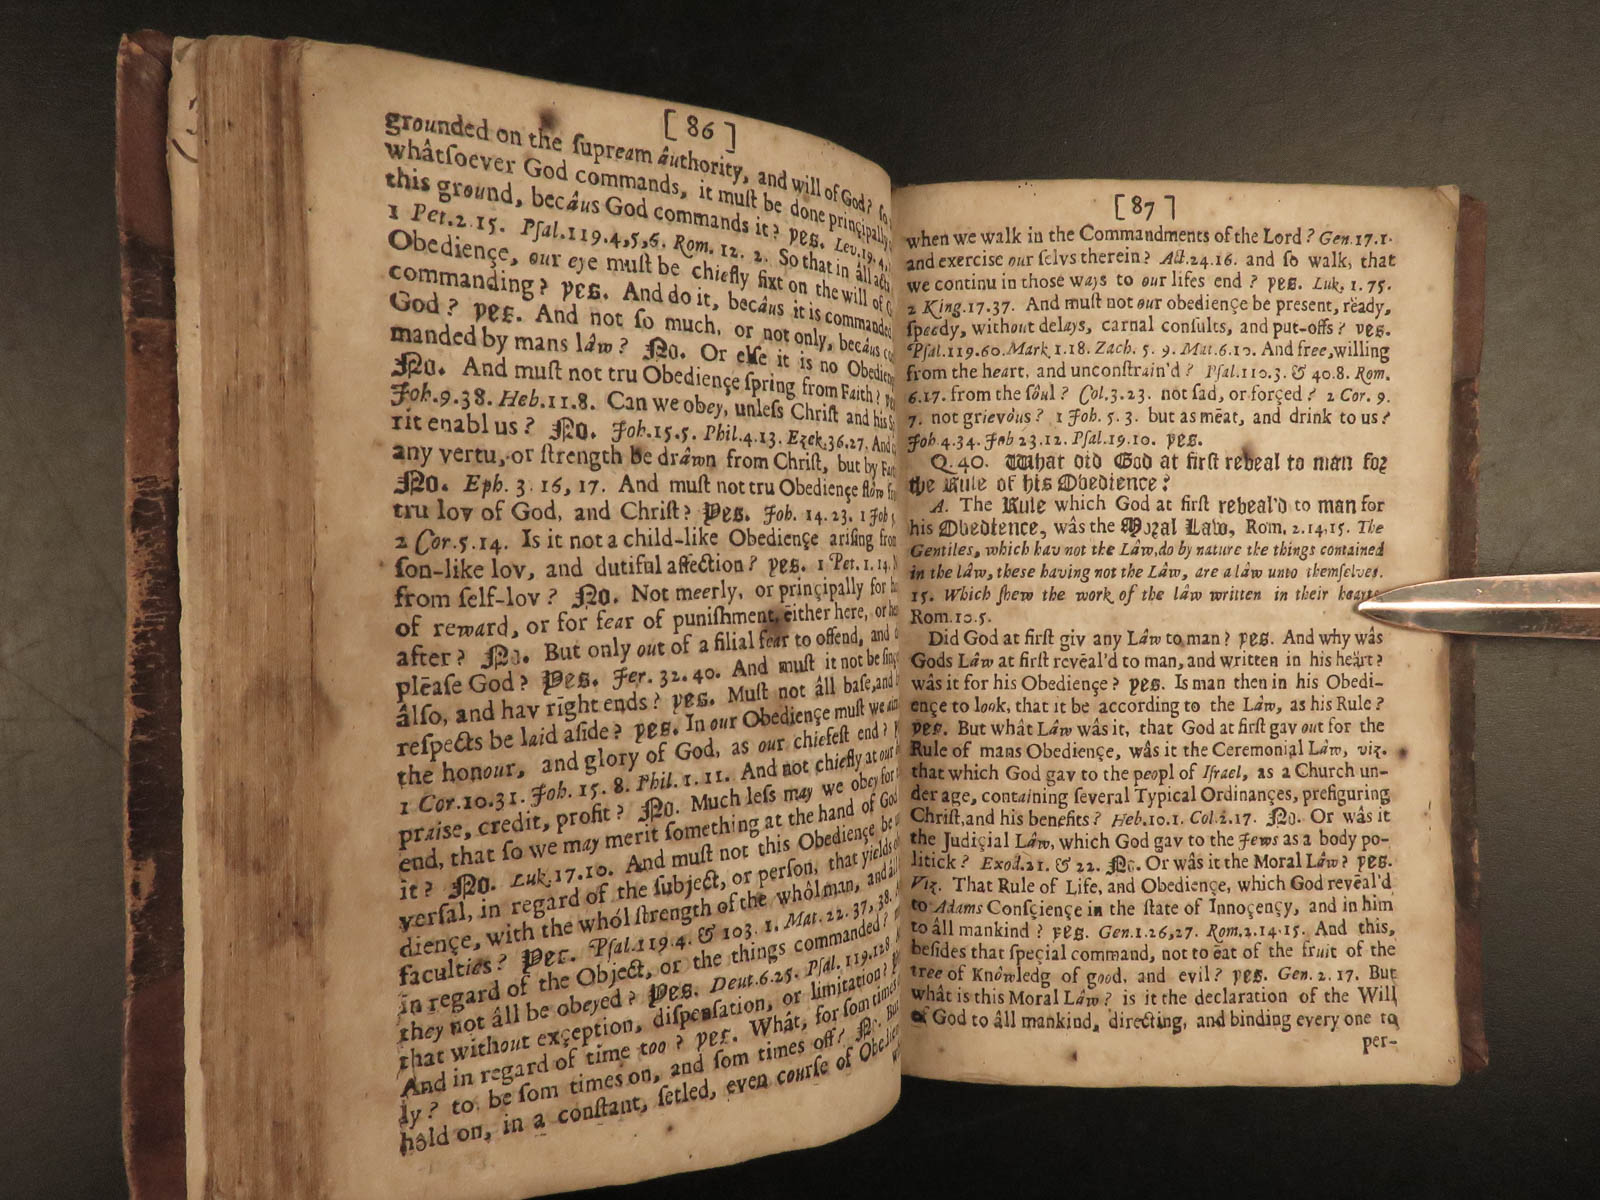 [ 86 ]
grounded on the ſupream âuthority, and will of God? ſo
whâtſoever God commands, it muſt be done prinçipally
this ground, becâus God commands it? yes. Lev. 19. 4,
1 Pet. 2 15. Pſal. 119. 4, 5, 6. Rom. 12. 2. So that in âll
Obedience, our eye muſt be chiefly fixt on the will of
commanding? yes. And do it, becâus it is commanded
God? yes. And not ſo much, or not only, becâus
manded by mans lâw? No. Or elſe it is no
No. And muſt not tru Obedience ſpring from Faith?
Joh. 9. 38. Heb. 11. 8. Can we obey, unleſs Chriſt and his
rit enabl us? No. Joh. 15. 5. Phil. 4. 13. Ezek. 36. 27. And
any vertu, or ſtrength be drâwn from Chriſt, but by
No. Eph. 3. 16, 17. And muſt not tru Obedience flôw
tru lov of God, and Chriſt? Yes. Joh. 14. 23. 1 Joh 5
2 Cor. 5. 14. Is it not a child-like Obedience ariſing from
ſon-like lov, and dutiful affection? yes. 1 Pet. 1. 14.
from ſelf-lov? No. Not meerly, or prinçipally for
of reward, or for fear of puniſhment, ēither here, or
after? No. But only out of a filial fear to offend, and
plēaſe God? Yes. Jer. 32. 40. And muſt it not be
âlſo, and hav right ends? yes. Muſt not âll baſe, and
reſpects be laid aſide? yes. In our Obedience muſt we
the honour, and glory of God, as our chiefeſt end?
1 Cor. 10. 31. Joh. 15. 8. Phil. 1. 11. And not chiefly at our
praiſe, credit, profit? No. Much leſs may we obey for
end, that ſo we may merit ſomething at the hand of God
it? No. Luk. 17. 10. And muſt not this Obedience be
verſal, in regard of the ſubject, or perſon, that yields
dience, with the whôl ſtrength of the whôl man, and
faculties? Yes. Pſal. 119. 4. & 103. 1. Mat. 22. 37, 38.
in regard of the Object, or the things commanded?
they not âll be obeyed? Yes. Deut. 6. 25. Pſal. 119. 128
that without exçeption, diſpenſation, or limitation?
And in regard of time too? yes. Whât, for ſom times
ly? to be ſom times on, and ſom times off? No.
hôld on, in a conſtant, ſetled, even courſe of
[ 87 ]
when we walk in the Commandments of the Lord? Gen. 17. 1.
and exerciſe our ſelvs therein? Act. 24. 16. and ſo walk, that
we continu in thoſe ways to our lifes end? yes. Luk. 1. 75.
2 King. 17. 37. And muſt not our obediençe be preſent, rēady,
ſpeedy, without delays, carnal conſults, and put-offs? yes.
Pſal. 119. 60. Mark 1. 18. Zach. 5. 9. Mat. 6. 10. And free, willing
from the heart, and unconſtrain'd? Pſal. 110. 3. & 40. 8. Rom.
6. 17. from the ſôul? Col. 3. 23. not ſad, or forçed? 2 Cor. 9.
7. not grievôus? 1 Joh. 5. 3. but as mēat, and drink to us?
Joh 4. 34. Job 23. 12. Pſal. 19. 10. yes.
Q. 40. What did God at firſt reveal to man for
the Rule of his Obedience?
A. The Rule which God at firſt reveal'd to man for
his Obedience, wâs the Moral Law, Rom. 2. 14. 15. The
Gentiles, which hav not the Lâw, do by nature the things contained
in the lâw, theſe having not the Lâw, are a lâw unto themſelves.
15. Which ſhew the work of the lâw written in their hearts
Rom. 10. 5.
Did God at firſt giv any Lâw to man? yes. And why wâs
Gods Lâw at firſt revēal'd to man, and written in his heart?
wâs it for his Obediençe? yes. Is man then in his Obedi-
ençe to look, that it be according to the Lâw, as his Rule?
yes. But whât Lâw wâs it, that God at firſt gav out for the
Rule of mans Obediençe, wâs it the Ceremonial Lâw, viz.
that which God gav to the peopl of Iſrael, as a Church un-
der age, containing ſeveral Typical Ordinançes, prefiguring
Chriſt, and his benefits? Heb. 10. 1. Col. 2. 17. No. Or wâs it
the Judiçial Lâw, which God gav to the Jews as a body po-
litick? Exod. 21. & 22. No. Or wâs it the Moral Lâw? yes.
Viz. That Rule of Life, and Obediençe, which God revēal'd
to Adams Conſçiençe in the ſtate of Innoçençy, and in him
to âll mankind? yes. Gen. 1. 26, 27. Rom. 2. 14. 15. And this,
beſides that ſpeçial command, not to ēat of the fruit of the
tree of Knôwledg of good, and evil? yes. Gen. 2. 17. But
whât is this Moral Lâw? is it the declaration of the Will
of God to âll mankind, directing, and binding every one to
per-